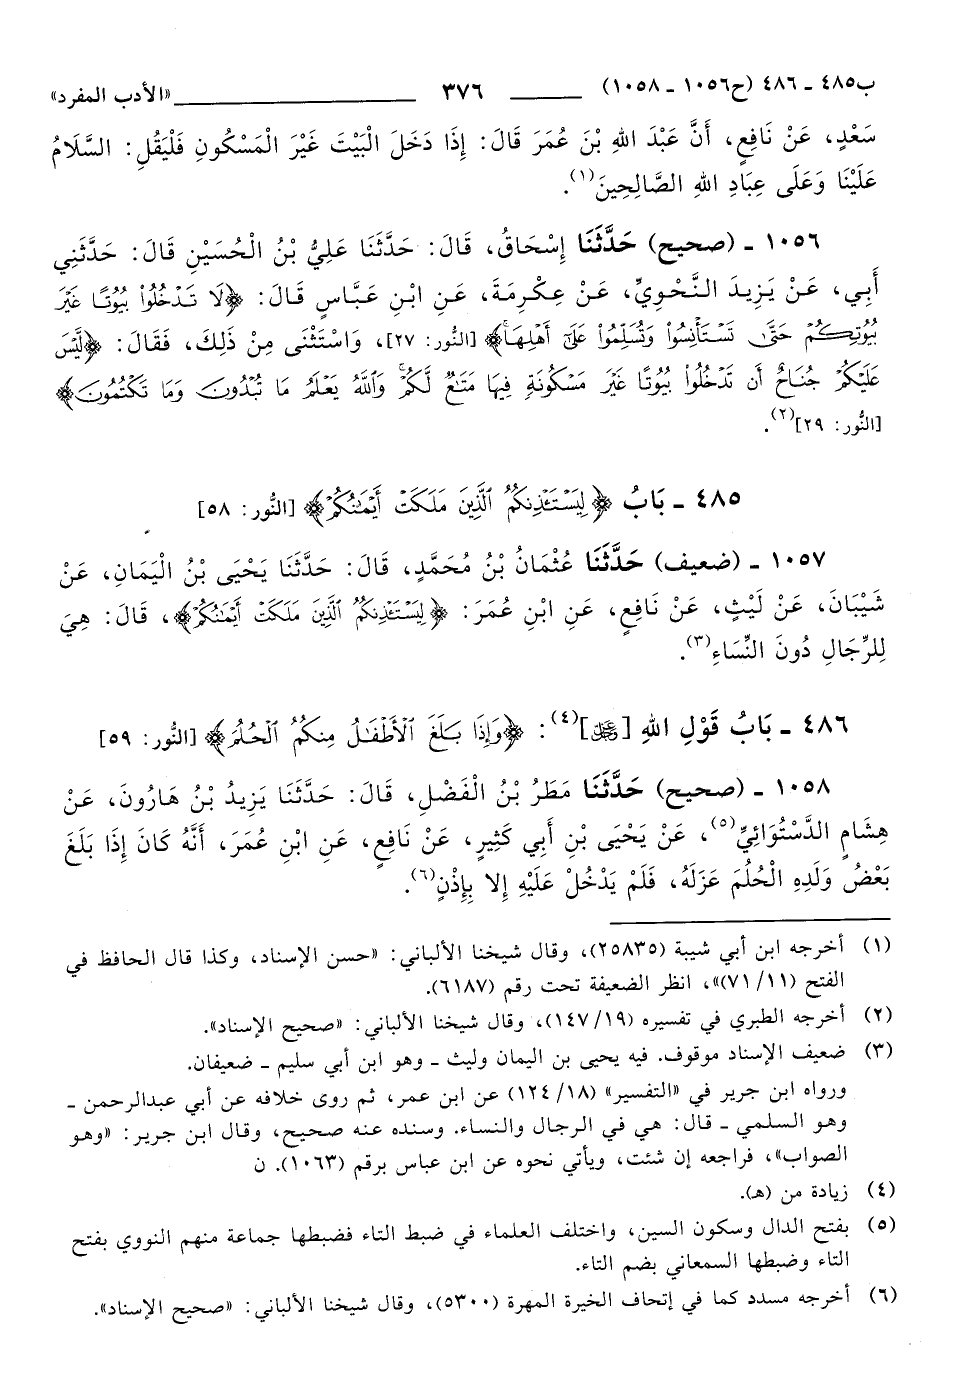 ب٤٨٥ ـ ٤٨٦ (ح١٠٥٦ ـ ١٠٥٨) ٣٧٦ «الأدب المفرد»
سَعْدٍ، عَنْ نَافِعٍ، أَنَّ عَبْدَ اللهِ بْنَ عُمَرَ قَالَ: إِذَا دَخَلَ الْبَيْتَ غَيْرَ الْمَسْكُونِ فَلْيَقُلِ: السَّلَامُ
عَلَيْنَا وَعَلَى عِبَادِ اللهِ الصَّالِحِينَ(١).
١٠٥٦ ـ (صحيح) حَدَّثَنَا إِسْحَاقُ، قَالَ: حَدَّثَنَا عَلِيُّ بْنُ الْحُسَيْنِ قَالَ: حَدَّثَنِي
أَبِي، عَنْ يَزِيدَ النَّحْوِيِّ، عَنْ عِكْرِمَةَ، عَنِ ابْنِ عَبَّاسٍ قَالَ: ﴿لَا تَدْخُلُوا۟ بُيُوتًا غَيْرَ
بُيُوتِكُمْ حَتَّىٰ تَسْتَأْنِسُوا۟ وَتُسَلِّمُوا۟ عَلَىٰٓ أَهْلِهَا﴾ [النُّور: ٢٧]، وَاسْتَثْنَى مِنْ ذَلِكَ، فَقَالَ: ﴿لَّيْسَ
عَلَيْكُمْ جُنَاحٌ أَن تَدْخُلُوا۟ بُيُوتًا غَيْرَ مَسْكُونَةٍ فِيهَا مَتَاعٌ لَّكُمْ وَٱللَّهُ يَعْلَمُ مَا تُبْدُونَ وَمَا تَكْتُمُونَ﴾
[النُّور: ٢٩](٢).
٤٨٥ ـ بَابُ ﴿لِيَسْتَـْٔذِنكُمُ ٱلَّذِينَ مَلَكَتْ أَيْمَـٰنُكُمْ﴾ [النُّور: ٥٨]
١٠٥٧ ـ (ضعيف) حَدَّثَنَا عُثْمَانُ بْنُ مُحَمَّدٍ، قَالَ: حَدَّثَنَا يَحْيَى بْنُ الْيَمَانِ، عَنْ
شَيْبَانَ، عَنْ لَيْثٍ، عَنْ نَافِعٍ، عَنِ ابْنِ عُمَرَ: ﴿لِيَسْتَـْٔذِنكُمُ ٱلَّذِينَ مَلَكَتْ أَيْمَـٰنُكُمْ﴾، قَالَ: هِيَ
لِلرِّجَالِ دُونَ النِّسَاءِ(٣).
٤٨٦ ـ بَابُ قَوْلِ اللهِ [ﷻ](٤): ﴿وَإِذَا بَلَغَ ٱلْأَطْفَـٰلُ مِنكُمُ ٱلْحُلُمَ﴾ [النُّور: ٥٩]
١٠٥٨ ـ (صحيح) حَدَّثَنَا مَطَرُ بْنُ الْفَضْلِ، قَالَ: حَدَّثَنَا يَزِيدُ بْنُ هَارُونَ، عَنْ
هِشَامٍ الدَّسْتُوَائِيِّ(٥)، عَنْ يَحْيَى بْنِ أَبِي كَثِيرٍ، عَنْ نَافِعٍ، عَنِ ابْنِ عُمَرَ، أَنَّهُ كَانَ إِذَا بَلَغَ
بَعْضُ وَلَدِهِ الْحُلُمَ عَزَلَهُ، فَلَمْ يَدْخُلْ عَلَيْهِ إِلا بِإِذْنٍ(٦).
(١) أخرجه ابن أبي شيبة (٢٥٨٣٥)، وقال شيخنا الألباني: «حسن الإسناد، وكذا قال الحافظ في
الفتح (١١/ ٧١)»، انظر الضعيفة تحت رقم (٦١٨٧).
(٢) أخرجه الطبري في تفسيره (١٩/ ١٤٧)، وقال شيخنا الألباني: «صحيح الإسناد».
(٣) ضعيف الإسناد موقوف. فيه يحيى بن اليمان وليث ـ وهو ابن أبي سليم ـ ضعيفان.
ورواه ابن جرير في «التفسير» (١٨/ ١٢٤) عن ابن عمر، ثم روى خلافه عن أبي عبدالرحمن ـ
وهو السلمي ـ قال: هي في الرجال والنساء. وسنده عنه صحيح، وقال ابن جرير: «وهو
الصواب»، فراجعه إن شئت، ويأتي نحوه عن ابن عباس برقم (١٠٦٣). ن
(٤) زيادة من (هـ).
(٥) بفتح الدال وسكون السين، واختلف العلماء في ضبط التاء فضبطها جماعة منهم النووي بفتح
التاء وضبطها السمعاني بضم التاء.
(٦) أخرجه مسدد كما في إتحاف الخيرة المهرة (٥٣٠٠)، وقال شيخنا الألباني: «صحيح الإسناد».